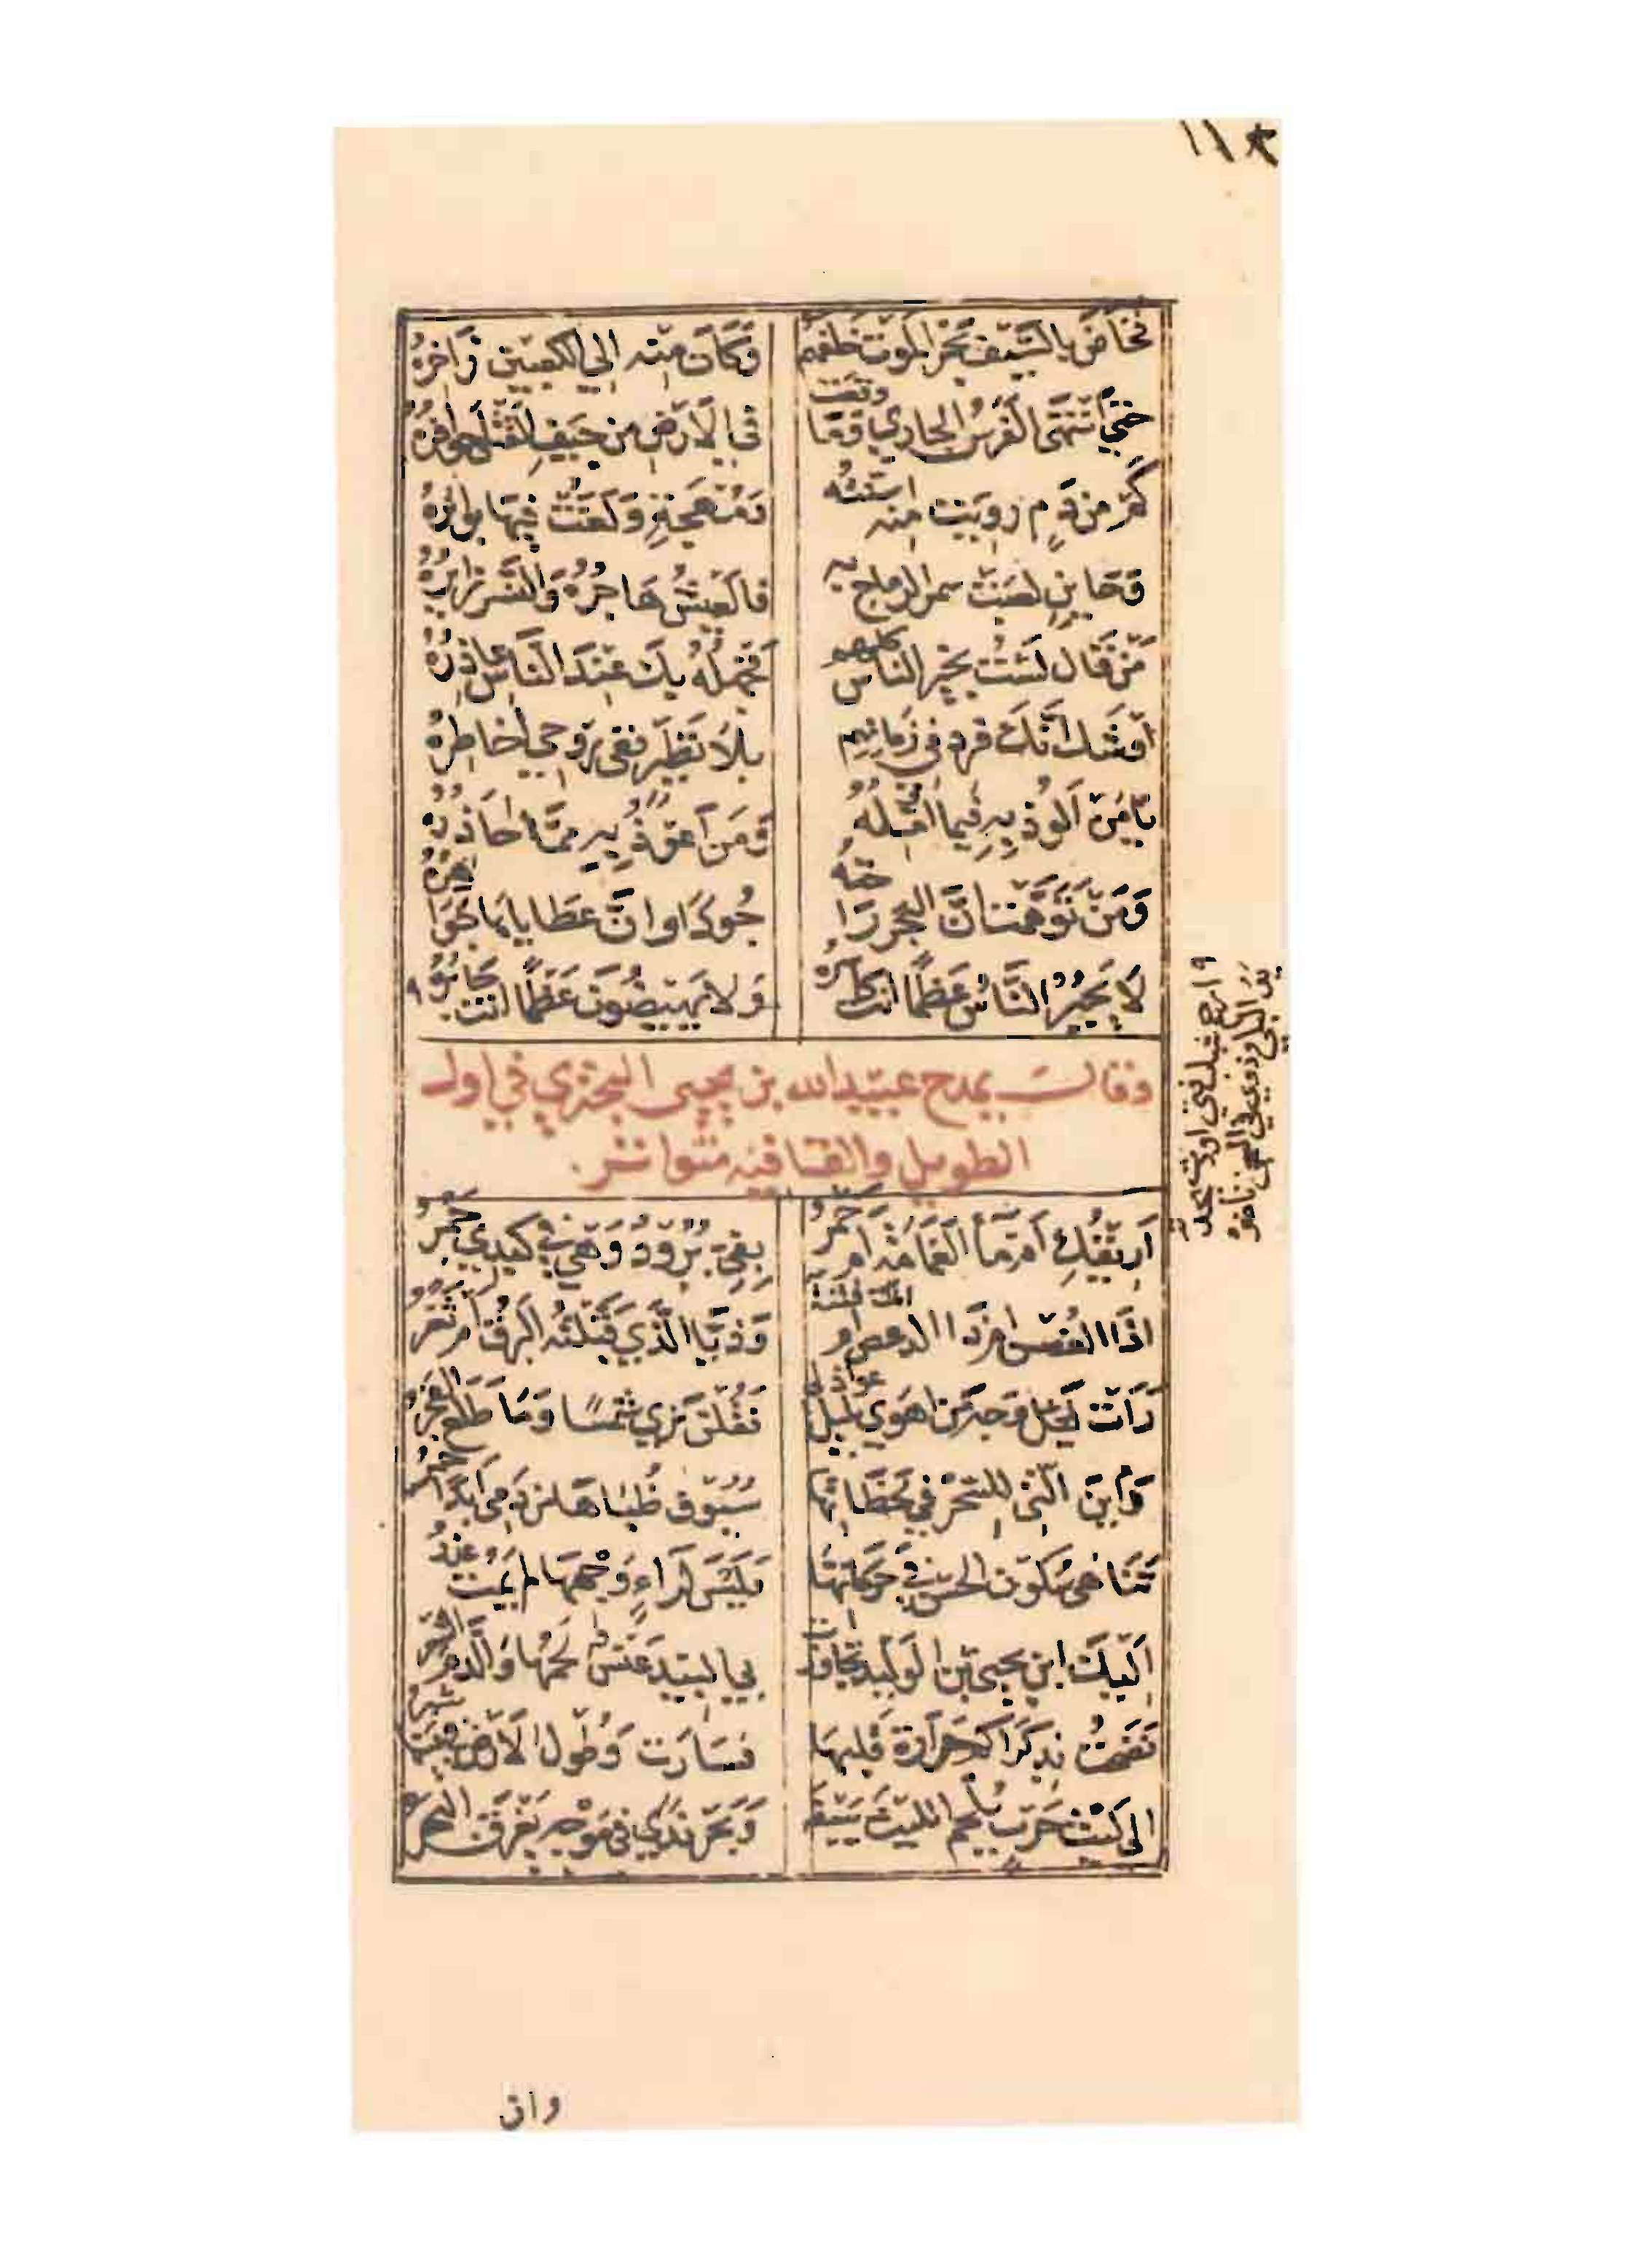 فخاض بالسيف بحر الموت خلفهم وكان منه الي الكعبين زاخره
حتي انتهي الفرس الجاري وما وقعت في الارض من جيف القتلي حوافره
كم من دم رويت منه اسنته ومهجة ولغت فيها بواتره
وحاين لعبت سمر الرماح به فالعيش هاجره والنسر زايره
من قال لست بخير الناس كلهم فجهله بك عند الناس عاذره
او شك انك فرد في زمانهم بلا نظير ففي روحي اخاطره
يا من الوذ به فيما اؤمله ومن اعوذ به مما احاذره
ومن توهمت ان البحر راحته جودا وان عطاياه جواهره
لا يجبر الناس عظما انت كاسره ولا يهيضون عظما انت جابره
وقال يمدح عبيد الله بن يحيي البحتري في اول
الطويل والقافيه متواتر
اريقك ام ماء الغمامة ام خمر بفي برود وهي في كبدي جمر
اذا الغصن ام ذا الدعص ام انت فتنة وذيا الذي قبلته البرق ام ثغر
رات وجه من اهوي بليل عواذلي فقلن نري شمسا وما طلع الفجر
راين التي للسحر في لحظاتها سيوف ظباها من دمي ابدا حمر
تناهي سكون الحسن في حركاتها فليس لراء وجهها لم يمت عذر
اليك ابن يحيي بن الوليد تجاوزت بي البيد عنس لحمها والدم الشعر
نضحت بذكراكم حرارة قلبها فسارت وطول الارض في عينها شبر
الي ليث حرب يلحم الليث سيفه وبحر ندي في موجه يغرق البحر
وان